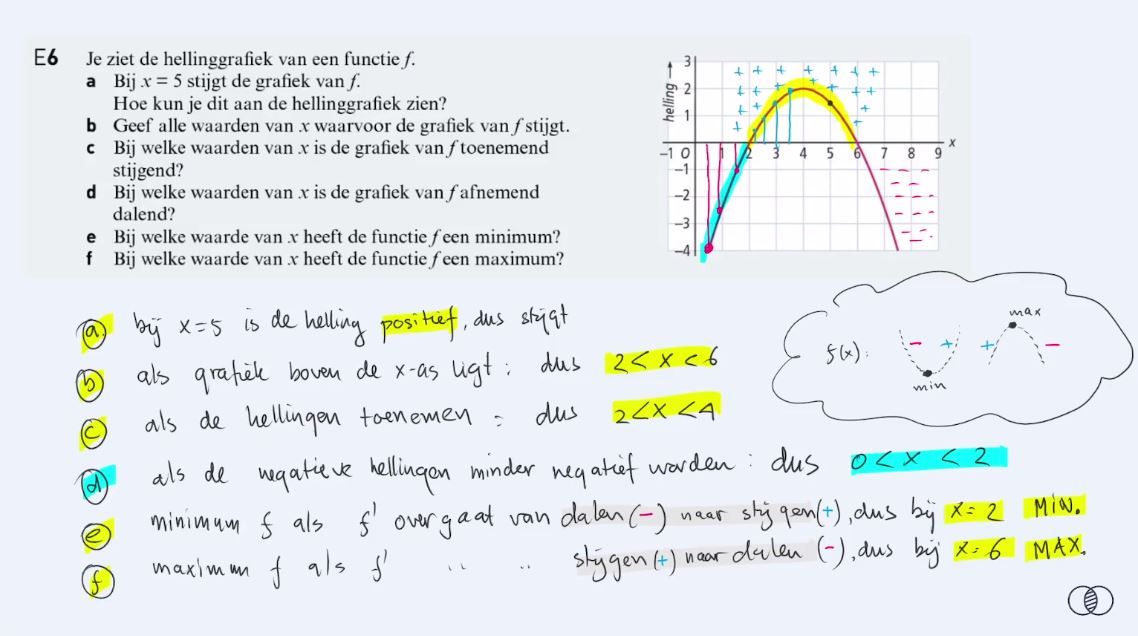 E6 Je ziet de hellinggrafiek van een functie f.
a Bij x = 5 stijgt de grafiek van f.
Hoe kun je dit aan de hellinggrafiek zien?
b Geef alle waarden van x waarvoor de grafiek van f stijgt.
c Bij welke waarden van x is de grafiek van f toenemend
stijgend?
d Bij welke waarden van x is de grafiek van f afnemend
dalend?
e Bij welke waarde van x heeft de functie f een minimum?
f Bij welke waarde van x heeft de functie f een maximum?
helling →
3
2
1
-1 0 1 2 3 4 5 6 7 8 9 x
-1
-2
-3
-4
f(x): - + min + max -
a. bij x=5 is de helling positief, dus stijgt
b als grafiek boven de x-as ligt : dus 2 < x < 6
c als de hellingen toenemen : dus 2 < x < 4
d als de negatieve hellingen minder negatief worden : dus 0 < x < 2
e minimum f als f' overgaat van dalen (-) naar stijgen (+), dus bij x = 2 MIN.
f maximum f als f' " " stijgen (+) naar dalen (-), dus bij x = 6 MAX.